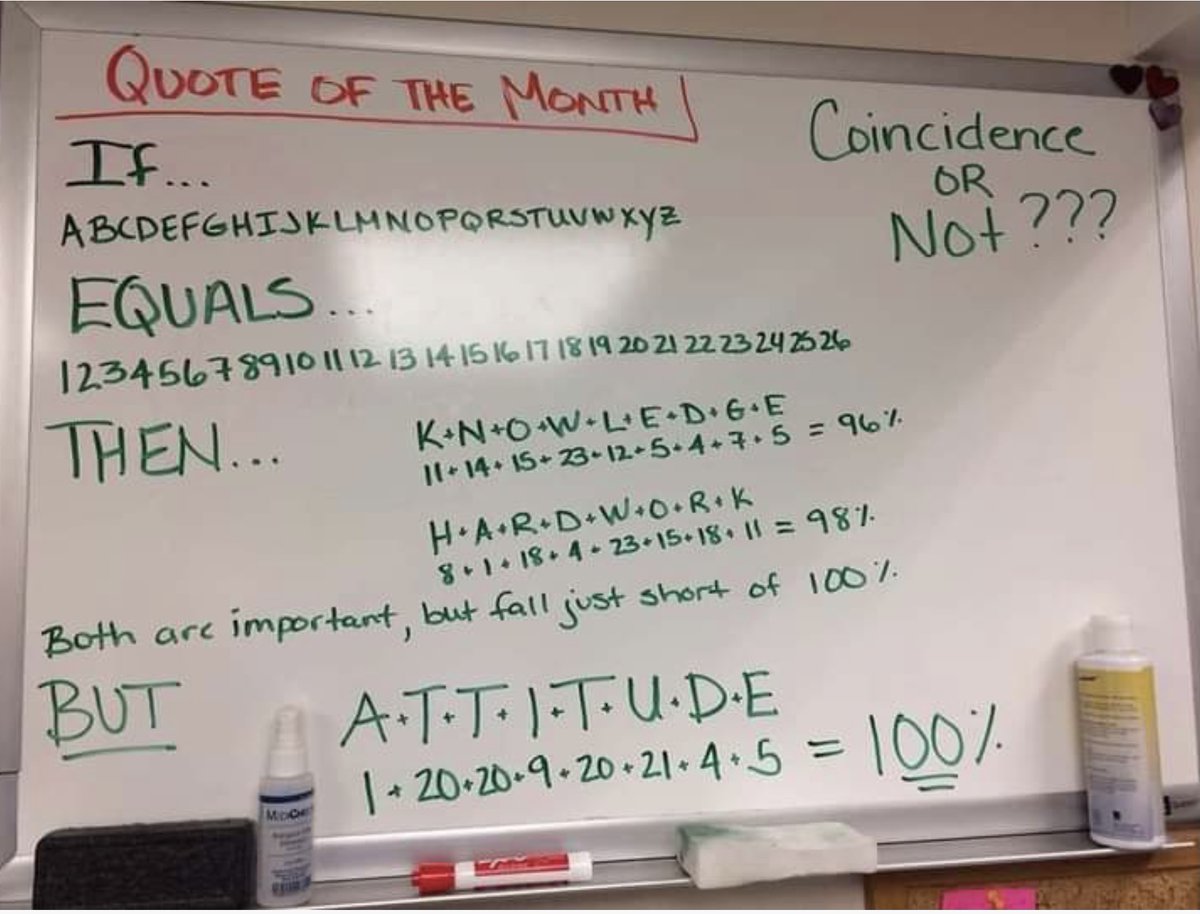 QUOTE OF THE MONTH
If...
ABCDEFGHIJKLMNOPQRSTUVWXYZ
EQUALS...
1234567891011121314151617181920212223242526
THEN...
K+N+O+W+L+E+D+G+E
11+14+15+23+12+5+4+7+5 = 96%
H+A+R+D+W+O+R+K
8+1+18+4+23+15+18+11 = 98%
Both are important, but fall just short of 100%
BUT
A+T+T+I+T+U+D+E
1+20+20+9+20+21+4+5 = 100%
Coincidence
OR
Not ???